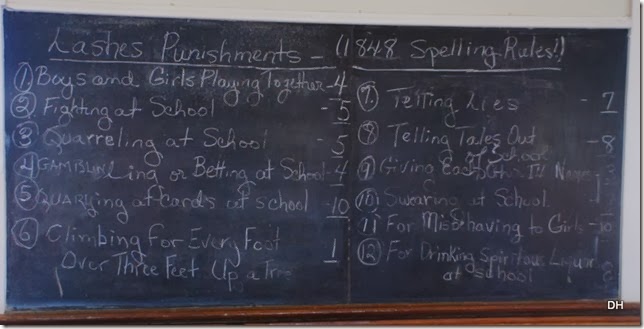 Lashes Punishments - (1848 Spelling Rules!)
① Boys and Girls Playing Together - 4
② Fighting at School - 5
③ Quarreling at School - 5
④ GAMBLING or Betting at School - 4
⑤ at Cards at school - 10
⑥ Climbing For Every Foot
Over Three Feet Up a Tree 1
⑦ Telling Lies - 7
⑧ Telling Tales Out
of School - 8
⑨ Giving Each Other Ill Names - 3
⑩ Swearing at School
11 For Misbehaving to Girls - 10
⑫ For Drinking Spiritous Liquor
at school 8
DH